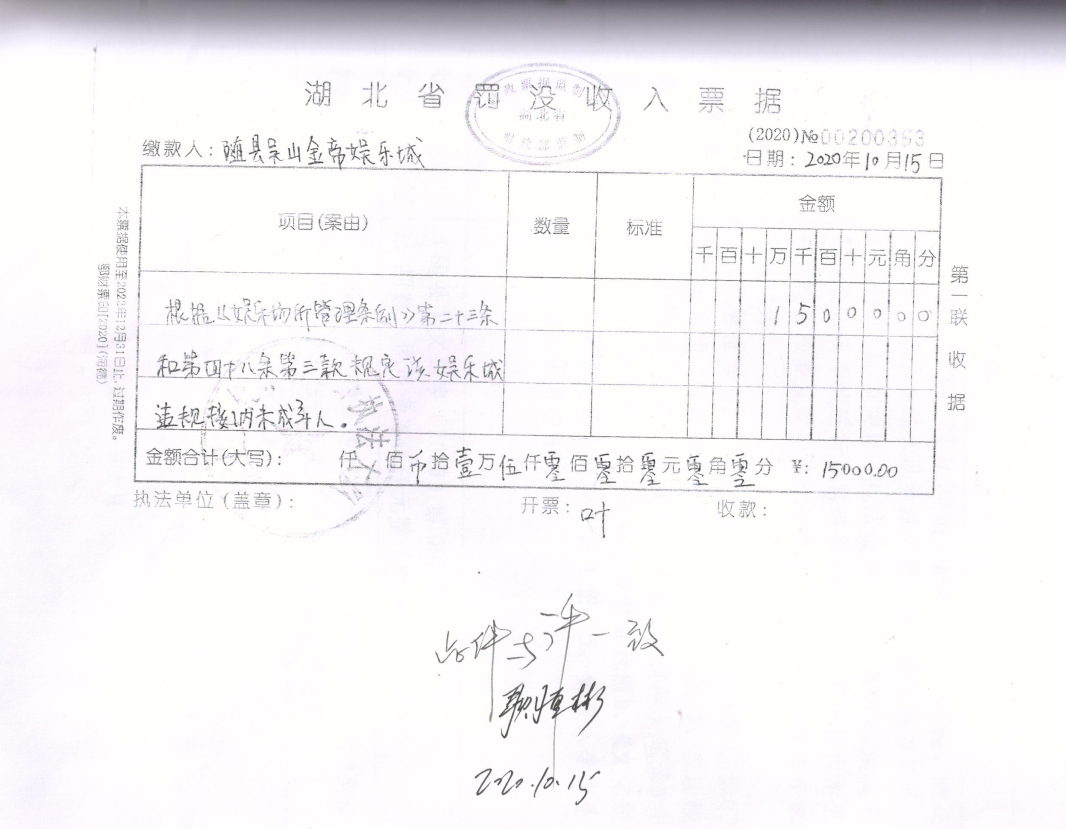 湖北省罚没收入票据
湖北省
(2020)№00200353
缴款人：随县吴山金帝娱乐城
日期：2020年10月15日
项目(案由) 数量 标准 金额
千 百 十 万 千 百 十 元 角 分
根据《娱乐场所管理条例》第二十三条 1 5 0 0 0 0 0
和第四十八条第三款规定该娱乐城
违规接纳未成年人。
金额合计(大写)： 仟 佰 币 拾 壹 万 伍 仟 零 佰 零 拾 零 元 零 角 零 分 ¥：15000.00
执法单位(盖章)： 开票：叶 收款：
第一联 收据
本票据使用至2022年12月31日止，过期作废。
鄂财票印[2020]
执法
与 一致
彬
2020.10.15